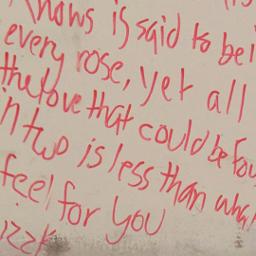 knows is said to bei
every rose, yet all
the love that could be fou
in two is less than what
feel for you
izzk